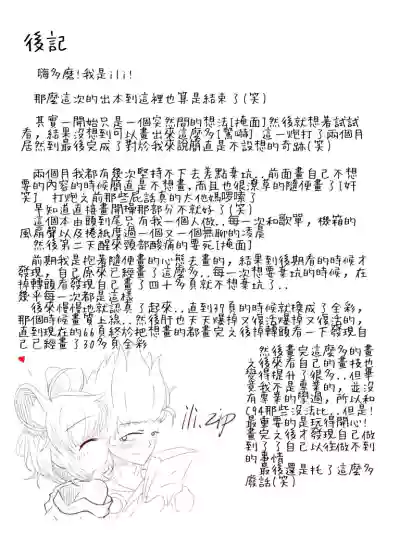 後記
嗨多磨!我是ili!
那麼這次的出本到這裡也算是結束了(笑)
其實一開始只是一個突然間的想法[掩面]然後就想著試試
看,結果沒想到可以畫出來這麼多[驚嚇] 這一炮打了兩個月
居然到最後完成了對於我來說簡直是不設想的奇跡(笑)
兩個月我都有幾次堅持不下去差點棄坑..前面畫自己不想
要的內容的時候簡直是不想畫,而且也很潦草的隨便畫了[奸
笑] 打炮之前那些屁話真的太他媽囉嗦了
早知道直接畫開操那部份不就好了
這個本由頭到尾只有我一個人做..每一次和歌單,機箱的
風扇聲以及捲紙度過一個又一個無聊的凌晨
然後第二天醒來頭部酸痛的要死[掩面]
前期我是抱著隨便畫的心態去畫的,結果到後期看的時候才
發現,自己原來已經畫了這麼多..每一次想要棄坑的時候,在
掉轉頭看發現自己畫了四十多頁就不想棄坑了..
幾乎每一次都是這樣
後來慢慢地就認真了起來..直到37頁的時候就換成了全彩,
那個時候畫質上線..然後肝也天天爆掉又復活爆掉又復活的,
直到現在的66頁終於把想畫的都畫完之後掉轉頭看一下發現自
己已經畫了30多頁全彩
然後畫完這麼多的畫
之後來看自己的畫技也
覺得提升了很多..但畢
竟我不是專業的,並沒
有專業的學過,所以和
C94那些沒法比..但是!
最重要的是玩得開心!
畫完之後才發現自己做
到了了自己以往做不到
的事情
最後還是托了這麼多
廢話(笑)
ili.zip